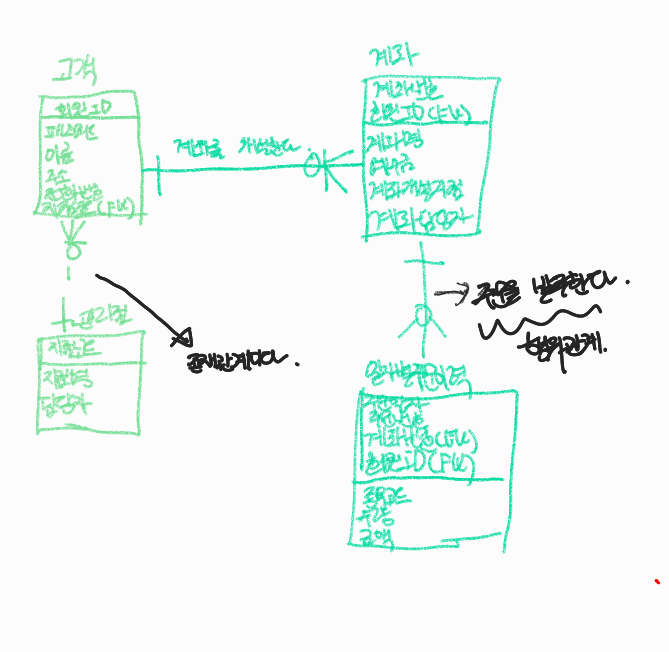 고객
회원ID
패스워드
이름
주소
전화번호
계좌를 개설한다.
계좌
계좌번호
회원ID(FK)
계좌명
예수금
계좌개설지점
계좌담당자
관리점
지점코드
지점명
담당자
존재관계이다.
주문을 발주한다.
행위관계.
일자별주문이력
주문일자
주문번호
계좌번호(FK)
회원ID(FK)
종목코드
수량
금액